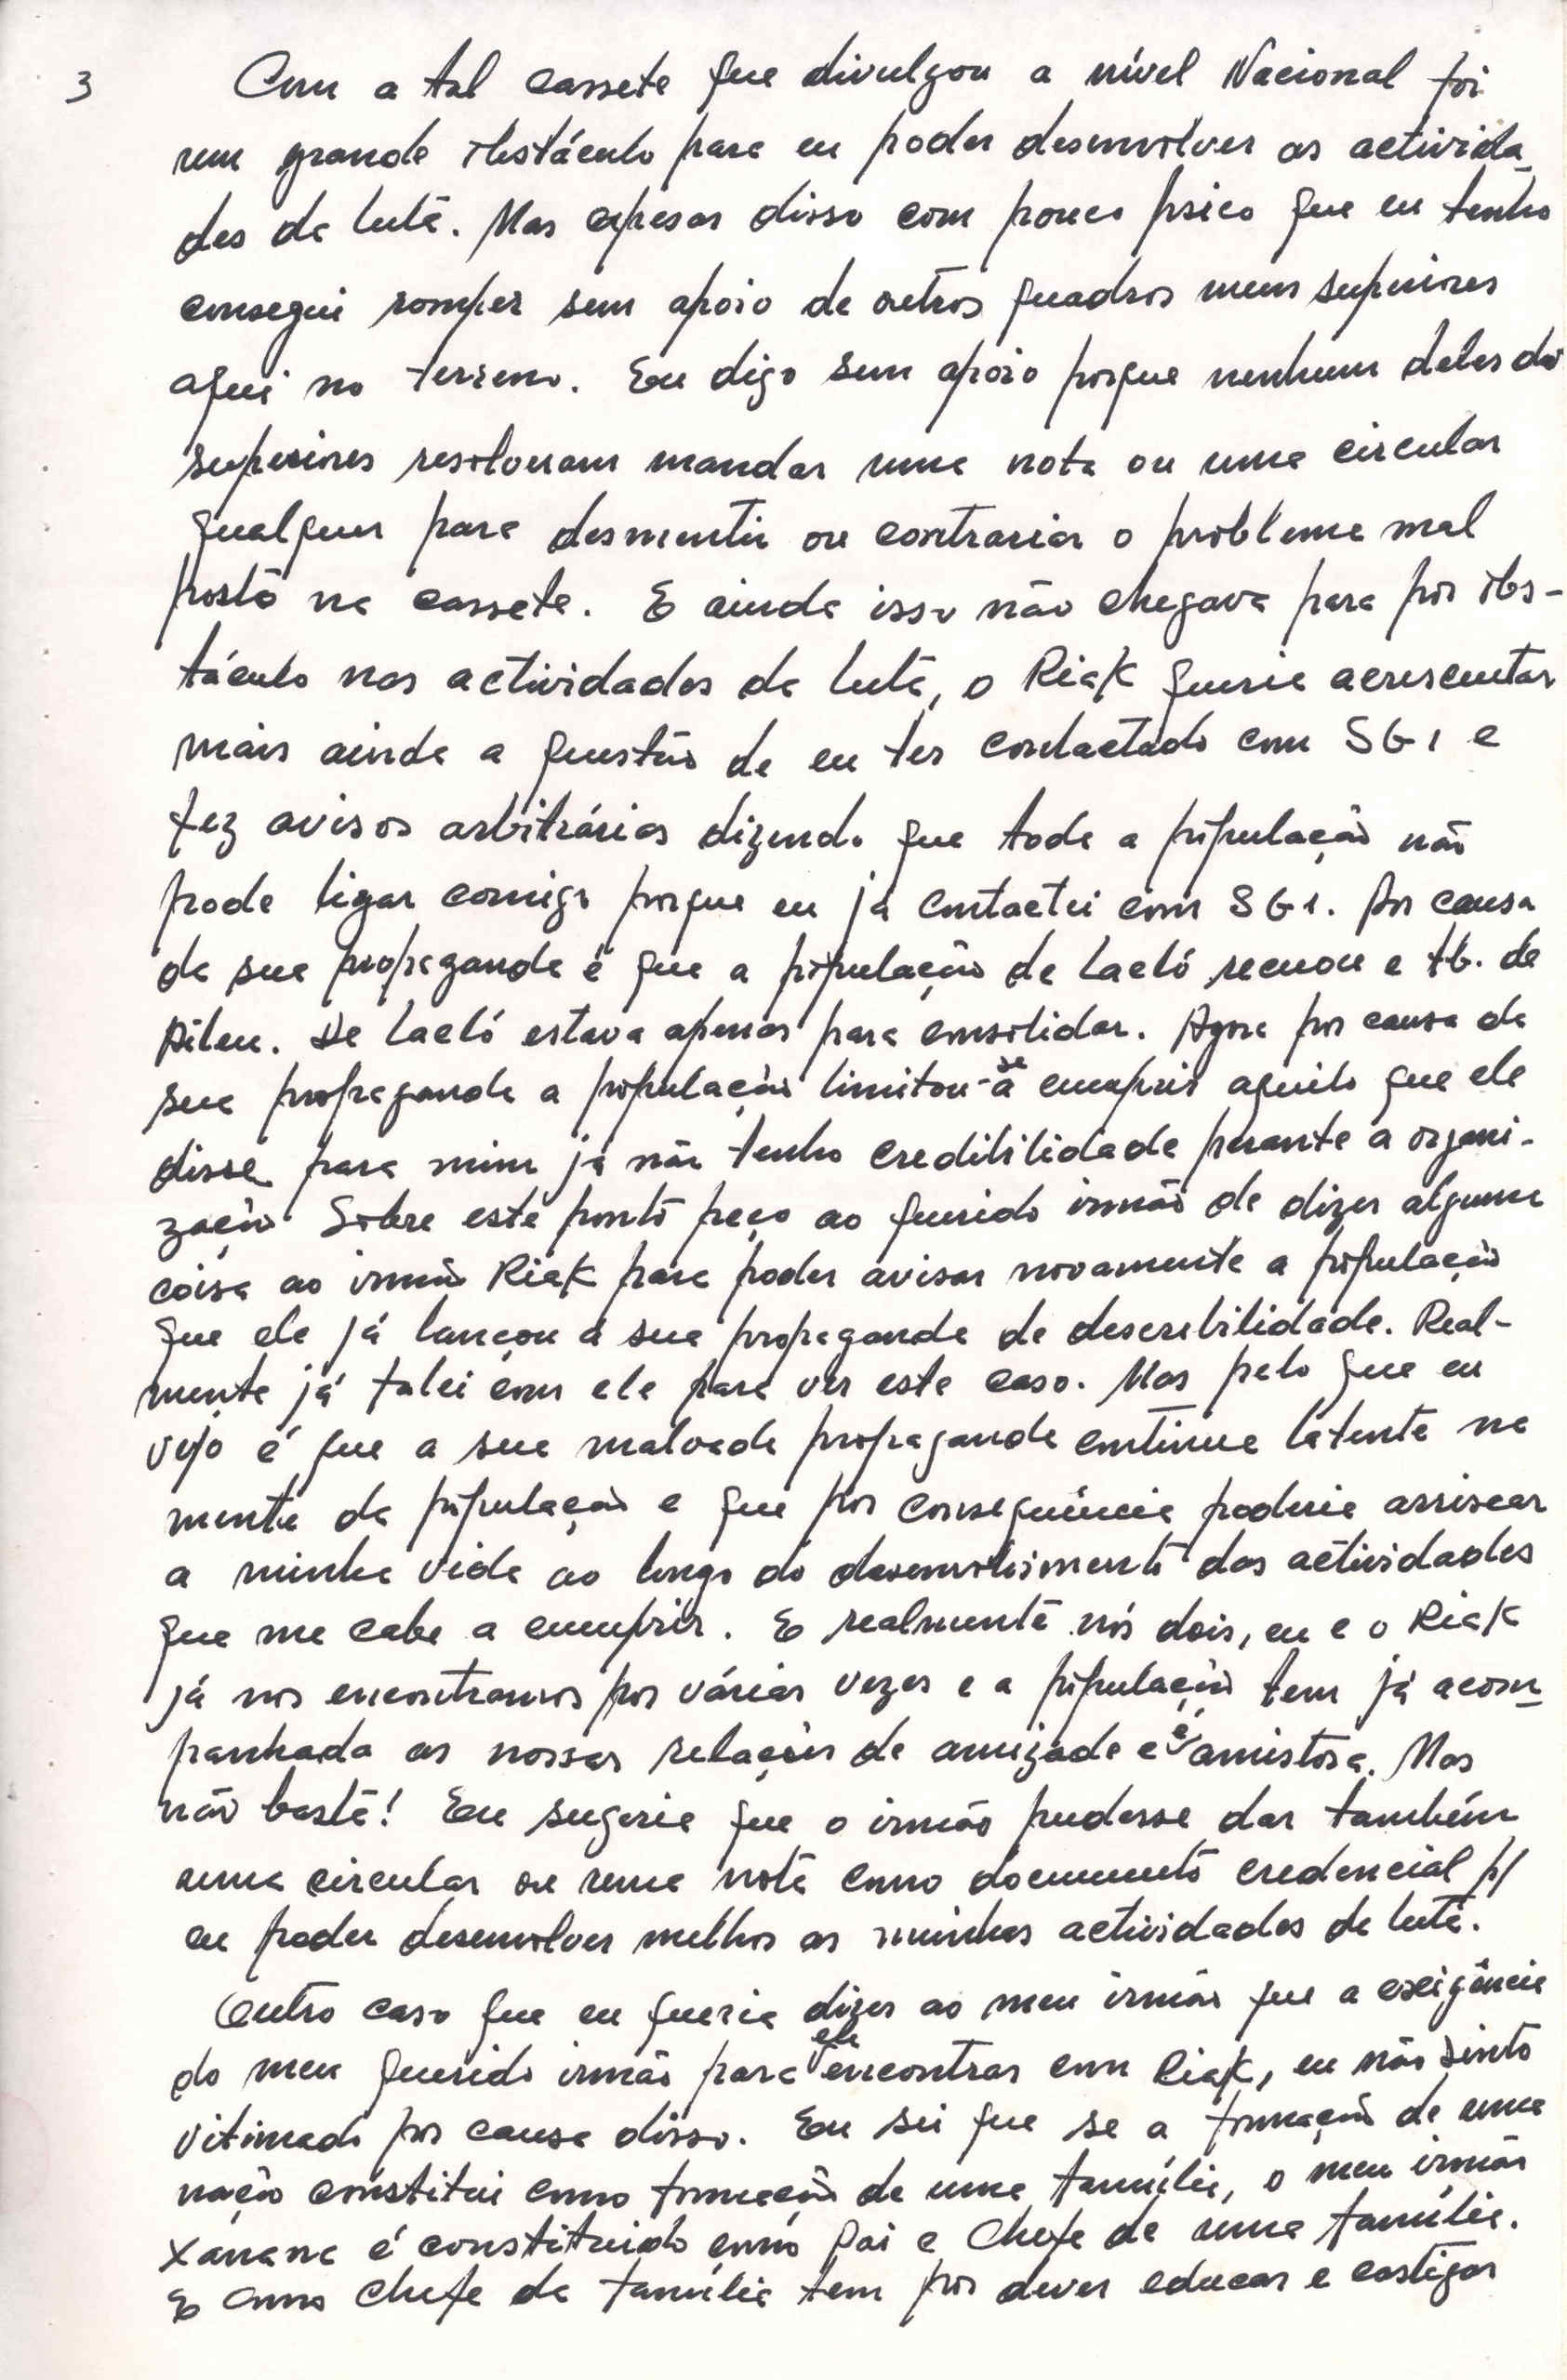 3
Com a tal cassete que divulgou a nível Nacional foi
um grande obstáculo para eu poder desenvolver as activida-
des da luta. Mas apesar disso com pouco fisico que eu tenho
consegui romper sem apoio de outros quadros meus superiores
aqui no terreno. Eu digo sem apoio porque nenhum deles dos
superiores resolveram mandar uma nota ou uma circular
qualquer para desmentir ou contrariar o problema mal
posto na cassete. E ainda isso não chegava para por obs-
táculo nas actividades da luta, o Riak queria acrescentar
mais ainda a questão de eu ter contactado com SGI e
fez avisos arbitrários dizendo que toda a população não
pode ligar comigo porque eu já contactei com SGI. Por causa
da sua propaganda é que a população de Lacló recuou e tb. de
Aileu. De Lacló estava apenas para consolidar. Agora por causa da
sua propaganda a população limitou-se a cumprir aquilo que ele
disse para mim já não tenho credibilidade perante a organi-
zação. Sobre este ponto peço ao querido irmão de dizer alguma
coisa ao irmão Riak para poder avisar novamente a população
que ele já lançou a sua propaganda de descrebilidade. Real-
mente já falei com ele para ver este caso. Mas pelo que eu
vejo é que a sua malvada propaganda continua latente na
mente da população e que por consequência poderia arriscar
a minha vida ao longo do desenvolvimento das actividades
que me cabe a cumprir. E realmente nós dois, eu e o Riak
já nos encontramos por várias vezes e a população tem já acom-
panhada as nossas relações de amizade e é amistosa. Mas
não basta! Eu sugeria que o irmão pudesse dar também
uma circular ou uma nota como documento credencial p/
eu poder desenvolver melhor as minhas actividades da luta.
Outro caso que eu queria dizer ao meu irmão que a exigência
do meu querido irmão para ele encontrar com Riak, eu não sinto
vitimado por causa disso. Eu sei que se a formação de uma
nação constitui como formação de uma família, o meu irmão
Xanana é constituido como Pai e Chefe de uma família.
E como chefe da família tem por dever educar e castigar